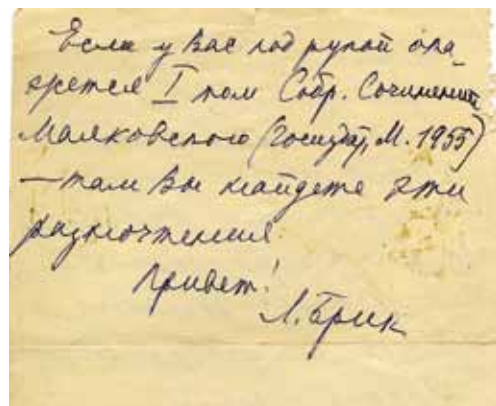 Если у Вас под рукой ока-
жется I том Собр. Сочинений
Маяковского (Госиздат, М. 1955)
— там Вы найдете эти
разночтения
Привет!
Л. Брик